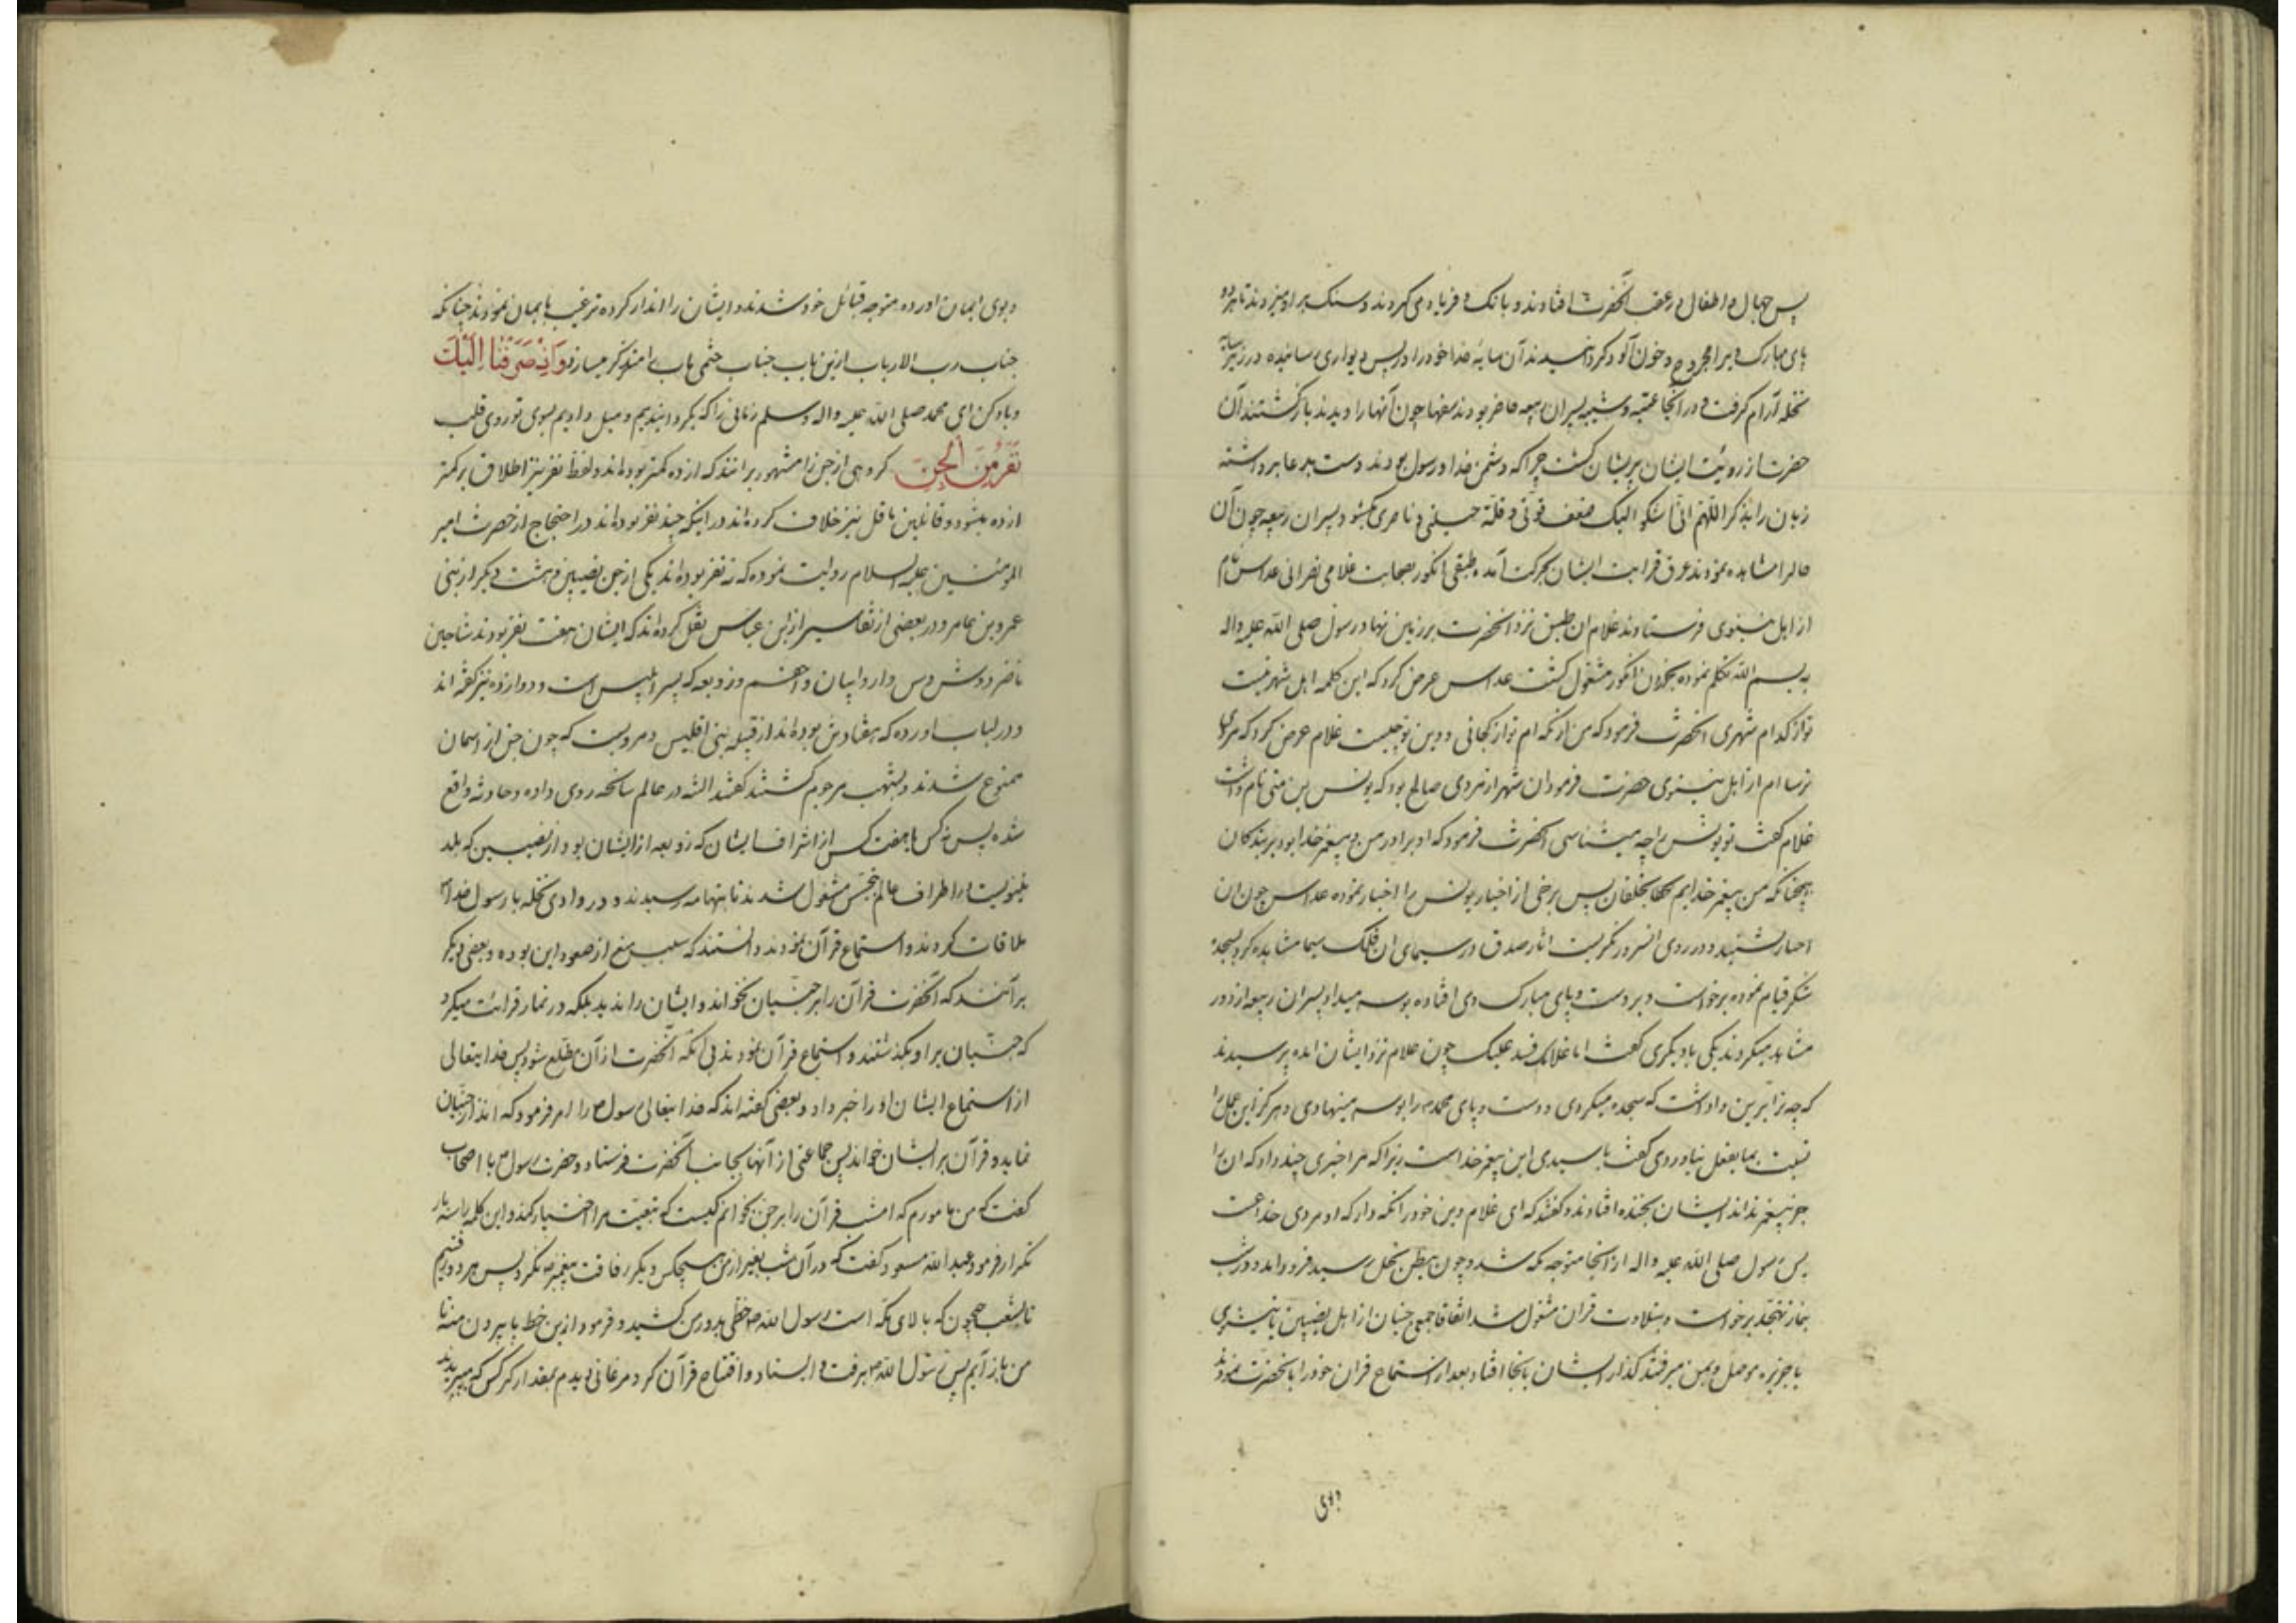 پس جهال و اطفال در عقب آنحضرت افتادند و بانک و فریاد می کردند و سنک بر او میزدند تا هر دو
پای مبارک ویرا مجروح و خون آلود گردانیدند آن سایهٔ خدا خود را در پس دیواری رسانیده در زیر سایه
نخله آرام گرفت و در آنجا عتبه و شیبه پسران ربیعه حاضر بودند سفها چون آنها را دیدند بازگشتند آن
حضرت از رؤیت ایشان پریشان گشت چرا که دشمن خدا و رسول بودند دست بدعا برداشته
زبان را بذکر اللّهم انّی اشکو الیک ضعف قوّتی و قلّة حیلتی و ناصری بگشود پسران ربیعه چون آن
حال را مشاهده نمودند عرق قرابت ایشان بحرکت آمده طبقی انکور بصحابت غلامی نصرانی عداس نام
از اهل نینوی فرستادند غلام ان طبق نزد انحضرت بر زمین نهاد رسول صلی الله علیه واله
به بسم الله تکلم نموده بخوردن انکور مشغول کشت عداس عرض کرد که این کلمه اهل شهر نیست
تو از کدام شهری انحضرت فرمود که من از مکه ام تو از کجائی و دین تو چیست غلام عرض کرد که مردی
ترسا ام از اهل نینوی حضرت فرمود ان شهر از مردی صالح بود که یونس بن متی نام داشت
غلام گفت تو یونس را چه میشناسی انحضرت فرمود که او برادر من و پیغمبر خدا بود بر بندکان
همچنانکه من پیغمبر خدایم پس برخی از اخبار یونس را اخبار نموده عداس چون ان
اخبار شنید و در روی انسرور نکریست اثار صدق در سیمای ان فلک سیما مشاهده کرد بسجده
شکر قیام نموده برخواست و بر دست و پای مبارک وی افتاده بوسه میداد پسران ربیعه از دور
مشاهده میکردند یکی با دیکری گفت اما غلامک فسد علیک چون غلام نزد ایشان امده پرسیدند
که چه ترا برین داداشت که سجده میکردی و دست و پای محمد را بوسه مینهادی و هرکز این عمل را
نسبت بما بفعل نیاوردی گفت یا سیدی این پیغمبر خداست زیرا که مرا خبری چند داد که ان را
جز پیغمبر نداند ایشان بخنده افتادند و گفتند که ای غلام دین خود را نکه دار که او مردی خداعست
پس رسول صلی الله علیه واله از انجا متوجه مکه شد و چون ببطن نخل رسید فرود امد و در شب
بنماز تهجد برخواست و بتلاوت قران مشغول شد اتفاقا جمیع جنیان از اهل نصیبین یا نینوی
یا جزیره موصل و یمن میرفتند گذار ایشان بانجا افتاد بعد از استماع قران خود را بانحضرت نمودند
و بوی
و بوی ایمان اورده متوجه قبائل خود شدند و ایشان را انذار کرده ترغیب بایمان نمودند چنانکه
جناب رب الارباب ازین باب جناب ختمی ماب را متذکر میسازد وَاِذْ صَرَفْنا اِلَیْکَ
و یاد کن ای محمد صلی الله علیه واله وسلم زمانی را که بگردانیدیم و میل دادیم بسوی تو روی قلب
نَفَراً مِنَ الْجِنِّ گروهی از جن را مشهور برانند که از ده کمتر بوده اند و لفظ نفر نیز اطلاق بر کمتر
از ده میشود و قائلین باقل نیز خلاف کرده اند در اینکه چند نفر بوده اند در احتجاج از حضرت امیر
المومنین علیه السلام روایت نموده که نه نفر بوده اند یکی از جن نصیبین و هشت دیکر از بنی
عمرو بن عامر و در بعضی از تفاسیر از ابن عباس نقل کرده اند که ایشان هفت نفر بودند شاحین
ناضر و دش و مس و ارد و اینان و احقم و زوبعه که پسر ابلیس است و دوازده نیز گفته اند
و در لباب اورده که هفتاد تن بوده اند از قبیله بنی اقلیس و مرویست که چون جن از اسمان
ممنوع شدند و بشهب مرجوم گشتند گفتند البته در عالم سانحه روی داده و حادثه واقع
شده پس نه کس یا هفت کس از اشراف ایشان که زوبعه از ایشان بود از نصیبین که بلد
نینویست در اطراف عالم بتجسس مشغول شدند تا بتهامه رسیدند و در وادی نخله با رسول خدا
ملاقات کردند و استماع قرآن نمودند دانستند که سبب منع از صعود این بوده و بعضی دیکر
برآنند که آنحضرت قرآن را بر جنّیان نخواند و ایشان را ندید بلکه در نماز قرائت میکرد
که جنّیان بر او بگذشتند و استماع قرآن نمودند بی آنکه آنحضرت از آن مطّلع شود پس خدایتعالی
از استماع ایشان او را خبر داد و بعضی گفته اند که خدایتعالی رسول را امر فرمود که انذار جنّیان
نماید و قرآن بر ایشان خواند پس جماعتی از آنها بجانب آنحضرت فرستاد و حضرت رسول با اصحاب
گفت که من مامورم که امشب قرآن را بر جن بخوانم کیست که تبعیّت مرا اختیار کند و این کلمه را سه بار
تکرار فرمود عبدالله مسعود گفت که در آن شب بغیر از من هیچکس دیکر رفاقت پیغمبر نکرد پس هر دو رفتیم
تا شعب حجون که بالای مکّه است رسول الله خطّی بدور من کشید و فرمود ازین خط پا بیرون منه تا
من باز آیم پس رسول الله برفت و ایستاد و افتتاح قرآن کرد مرغانی دیدم بمقدار کرکس که میپریدند